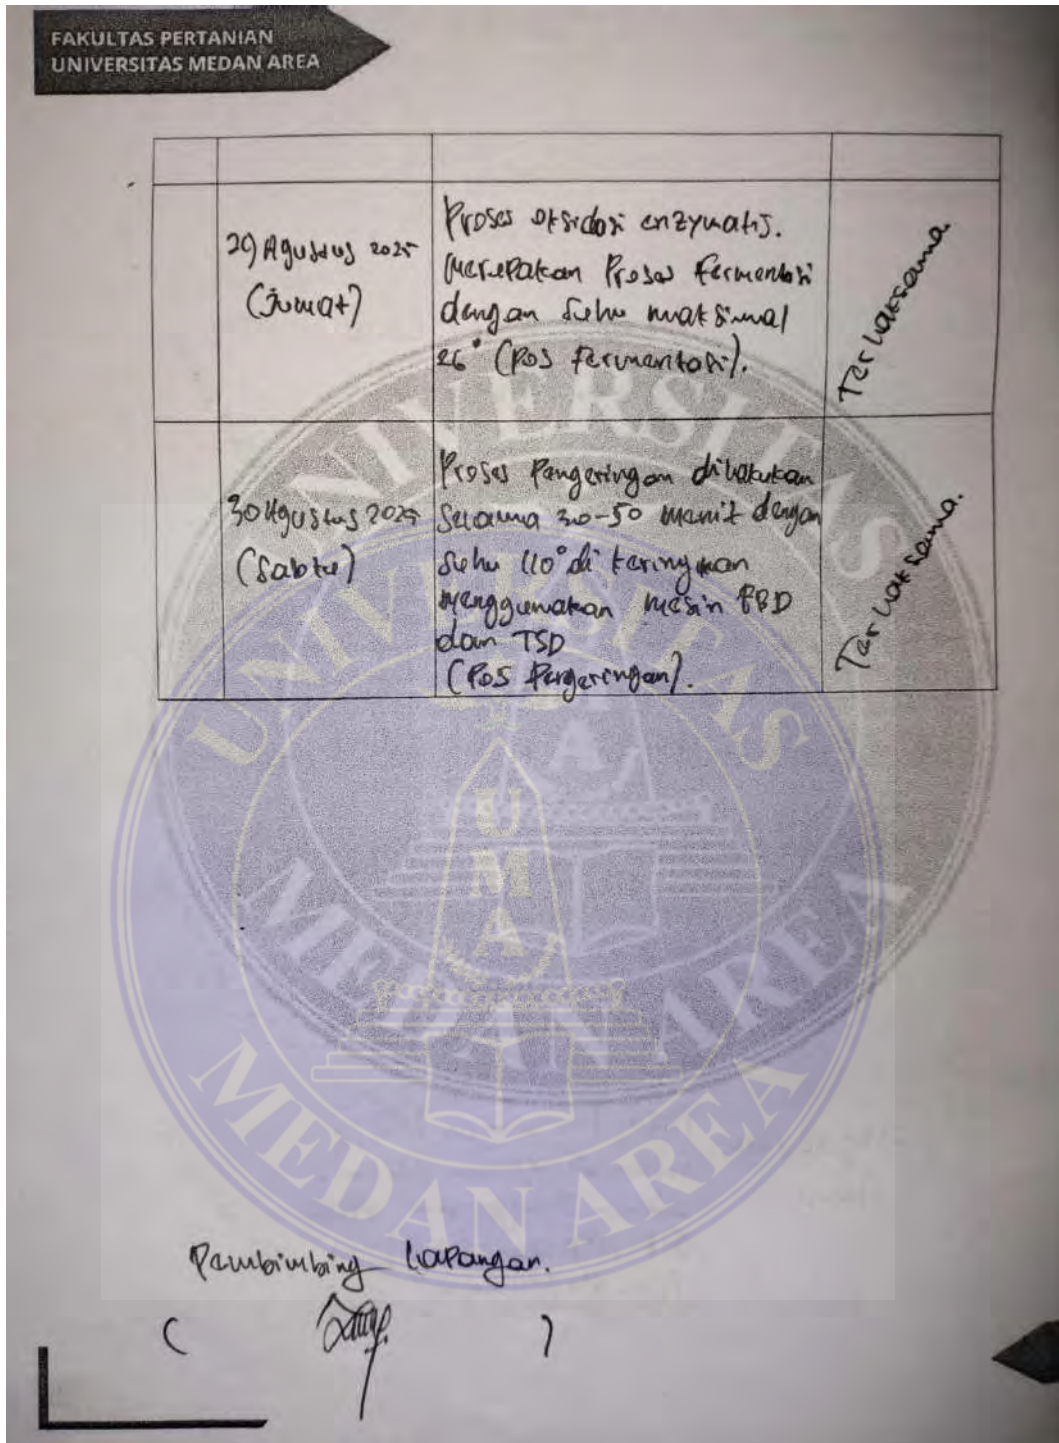 FAKULTAS PERTANIAN
UNIVERSITAS MEDAN AREA
29 Agustus 2025
(Jumat)
Proses oksidasi enzymatis.
merupakan Proses fermentasi
dengan suhu maksimal
26° (Pos fermentasi).
Terlaksana
30 Agustus 2025
(Sabtu)
Proses Pengeringan dilakukan
selama 30-50 menit dengan
suhu 110° di keringkan
menggunakan mesin FBD
dan TSD
(Pos Pengeringan).
Terlaksana.
UNIVERSITAS
MEDAN AREA
A
UNIVERSITAS
MEDAN AREA
UMA
Pembimbing Lapangan.
( )